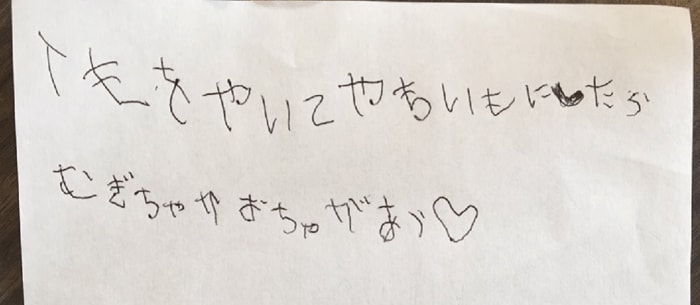 いもをやいてやきいもにしたら
むぎちゃか おちゃが あう♡